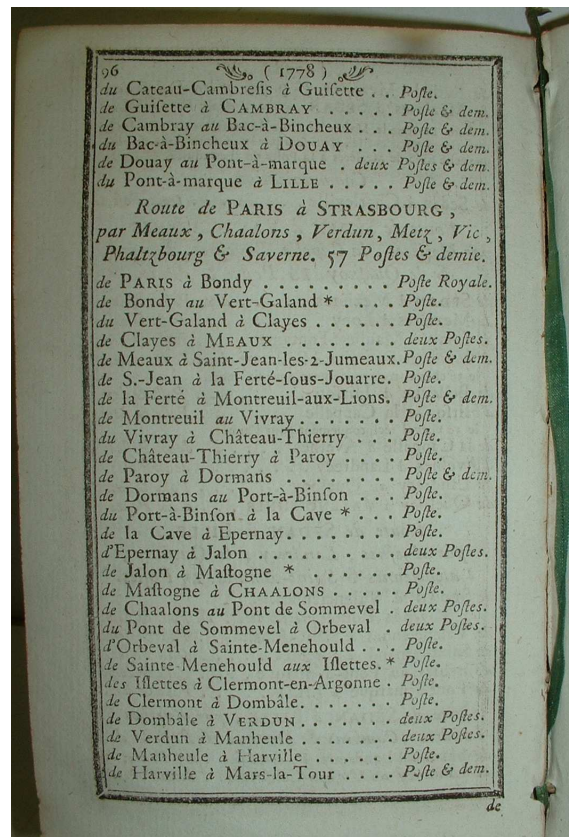 96 ( 1778 )
du Cateau-Cambreſis à Guiſette . . Poſte.
de Guiſette à CAMBRAY . . . . . Poſte & dem.
de Cambray au Bac-à-Bincheux . . . Poſte & dem.
du Bac-à-Bincheux à DOUAY . . . Poſte & dem.
de Douay au Pont-à-marque . deux Poſtes & dem.
du Pont-à-marque à LILLE . . . . . Poſte & dem.
Route de PARIS à STRASBOURG ,
par Meaux , Chaalons , Verdun, Metz , Vic ,
Phaltzbourg & Saverne. 57 Poſtes & demie.
de PARIS à Bondy . . . . . . . . . Poſte Royale.
de Bondy au Vert-Galand * . . . . Poſte.
du Vert-Galand à Clayes . . . . . . Poſte.
de Clayes à MEAUX . . . . . . . . deux Poſtes.
de Meaux à Saint-Jean-les-2-Jumeaux. Poſte & dem.
de S.-Jean à la Ferté-ſous-Jouarre. Poſte.
de la Ferté à Montreuil-aux-Lions. Poſte & dem.
de Montreuil au Vivray . . . . . . . Poſte.
du Vivray à Château-Thierry . . . Poſte.
de Château-Thierry à Paroy . . . . Poſte.
de Paroy à Dormans . . . . . . . . Poſte & dem.
de Dormans au Port-à-Binſon . . . Poſte.
du Port-à-Binſon à la Cave * . . . Poſte.
de la Cave à Epernay. . . . . . . . Poſte.
d'Epernay à Jalon . . . . . . . . . . deux Poſtes.
de Jalon à Maſtogne * . . . . . . Poſte.
de Maſtogne à CHAALONS . . . . . Poſte.
de Chaalons au Pont de Sommevel . deux Poſtes.
du Pont de Sommevel à Orbeval . deux Poſtes.
d'Orbeval à Sainte-Menehould . . . Poſte.
de Sainte-Menehould aux Iſlettes. * Poſte.
des Iſlettes à Clermont-en-Argonne . Poſte.
de Clermont à Dombâle. . . . . . . Poſte.
de Dombâle à VERDUN . . . . . . . deux Poſtes.
de Verdun à Manheule . . . . . . . deux Poſtes.
de Manheule à Harville . . . . . . Poſte.
de Harville à Mars-la-Tour . . . . Poſte & dem.
de